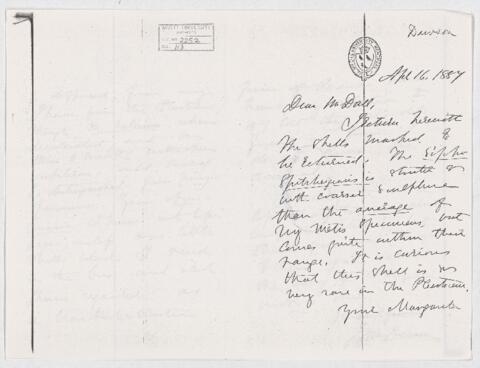 Dawson
McGILL UNIVERSITY
ARCHIVES
ACC. NO. 2252
REF. 43
Apl 16. 1887
Dear Mr Dall,
I return herewith
the shells marked to
be returned. The Sipho
Spitzbergensis is stouter &
with coarser sculpture
than the average of
my Metis specimens but
comes quite within their
range. It is curious
that this shell is so
very rare in the Pleistocene.